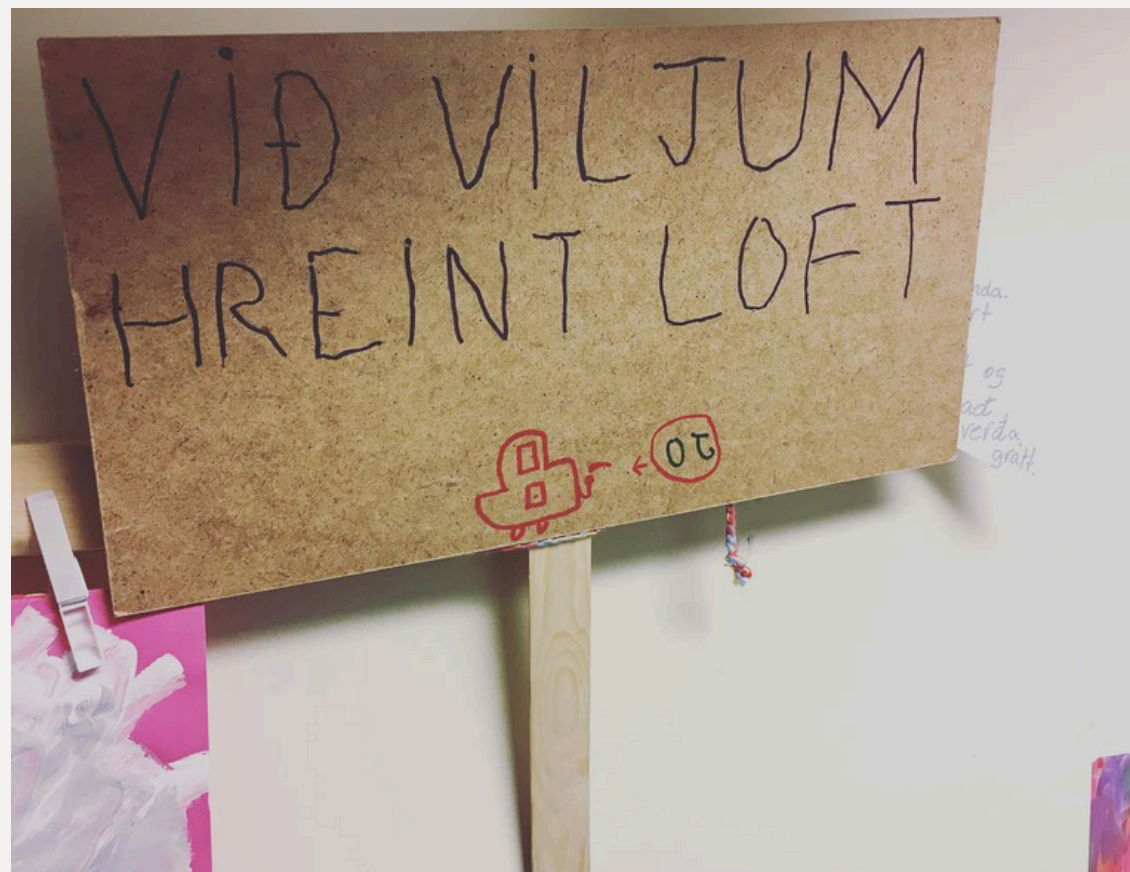 VIÐ VILJUM
HREINT LOFT
og
verða
grátt.